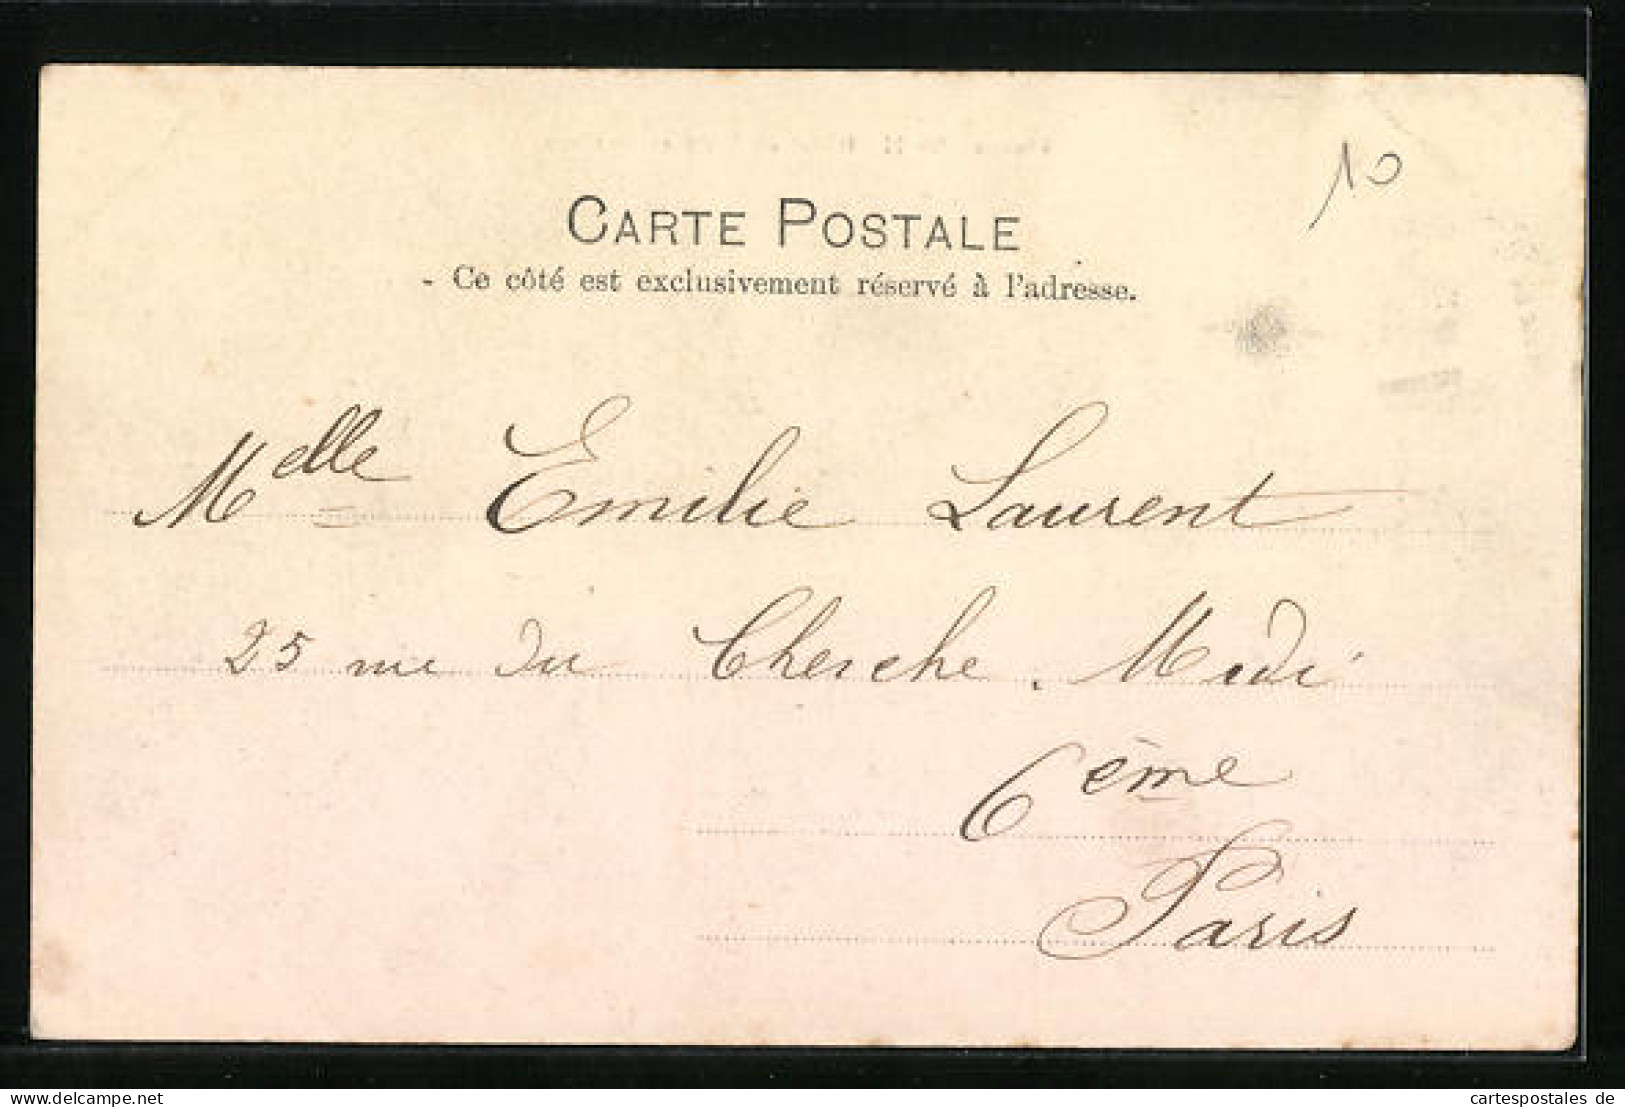 10
CARTE POSTALE
- Ce côté est exclusivement réservé à l'adresse.
Melle Emilie Laurent
25 rue du Cherche. Midi
6ème
Paris
www.cartespostales.de
cartespostales de